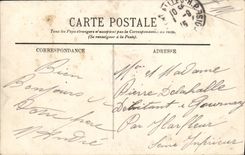 CARTE POSTALE
Tous les Pays étrangers n'acceptent pas la Correspondance au recto.
(Se renseigner à la Poste)
CORRESPONDANCE
ADRESSE
Bien
Bonjours
André
Mr et Madame
Pierre Delahalle
Débitant à Gournay
Par Harfleur
Seine Inférieure